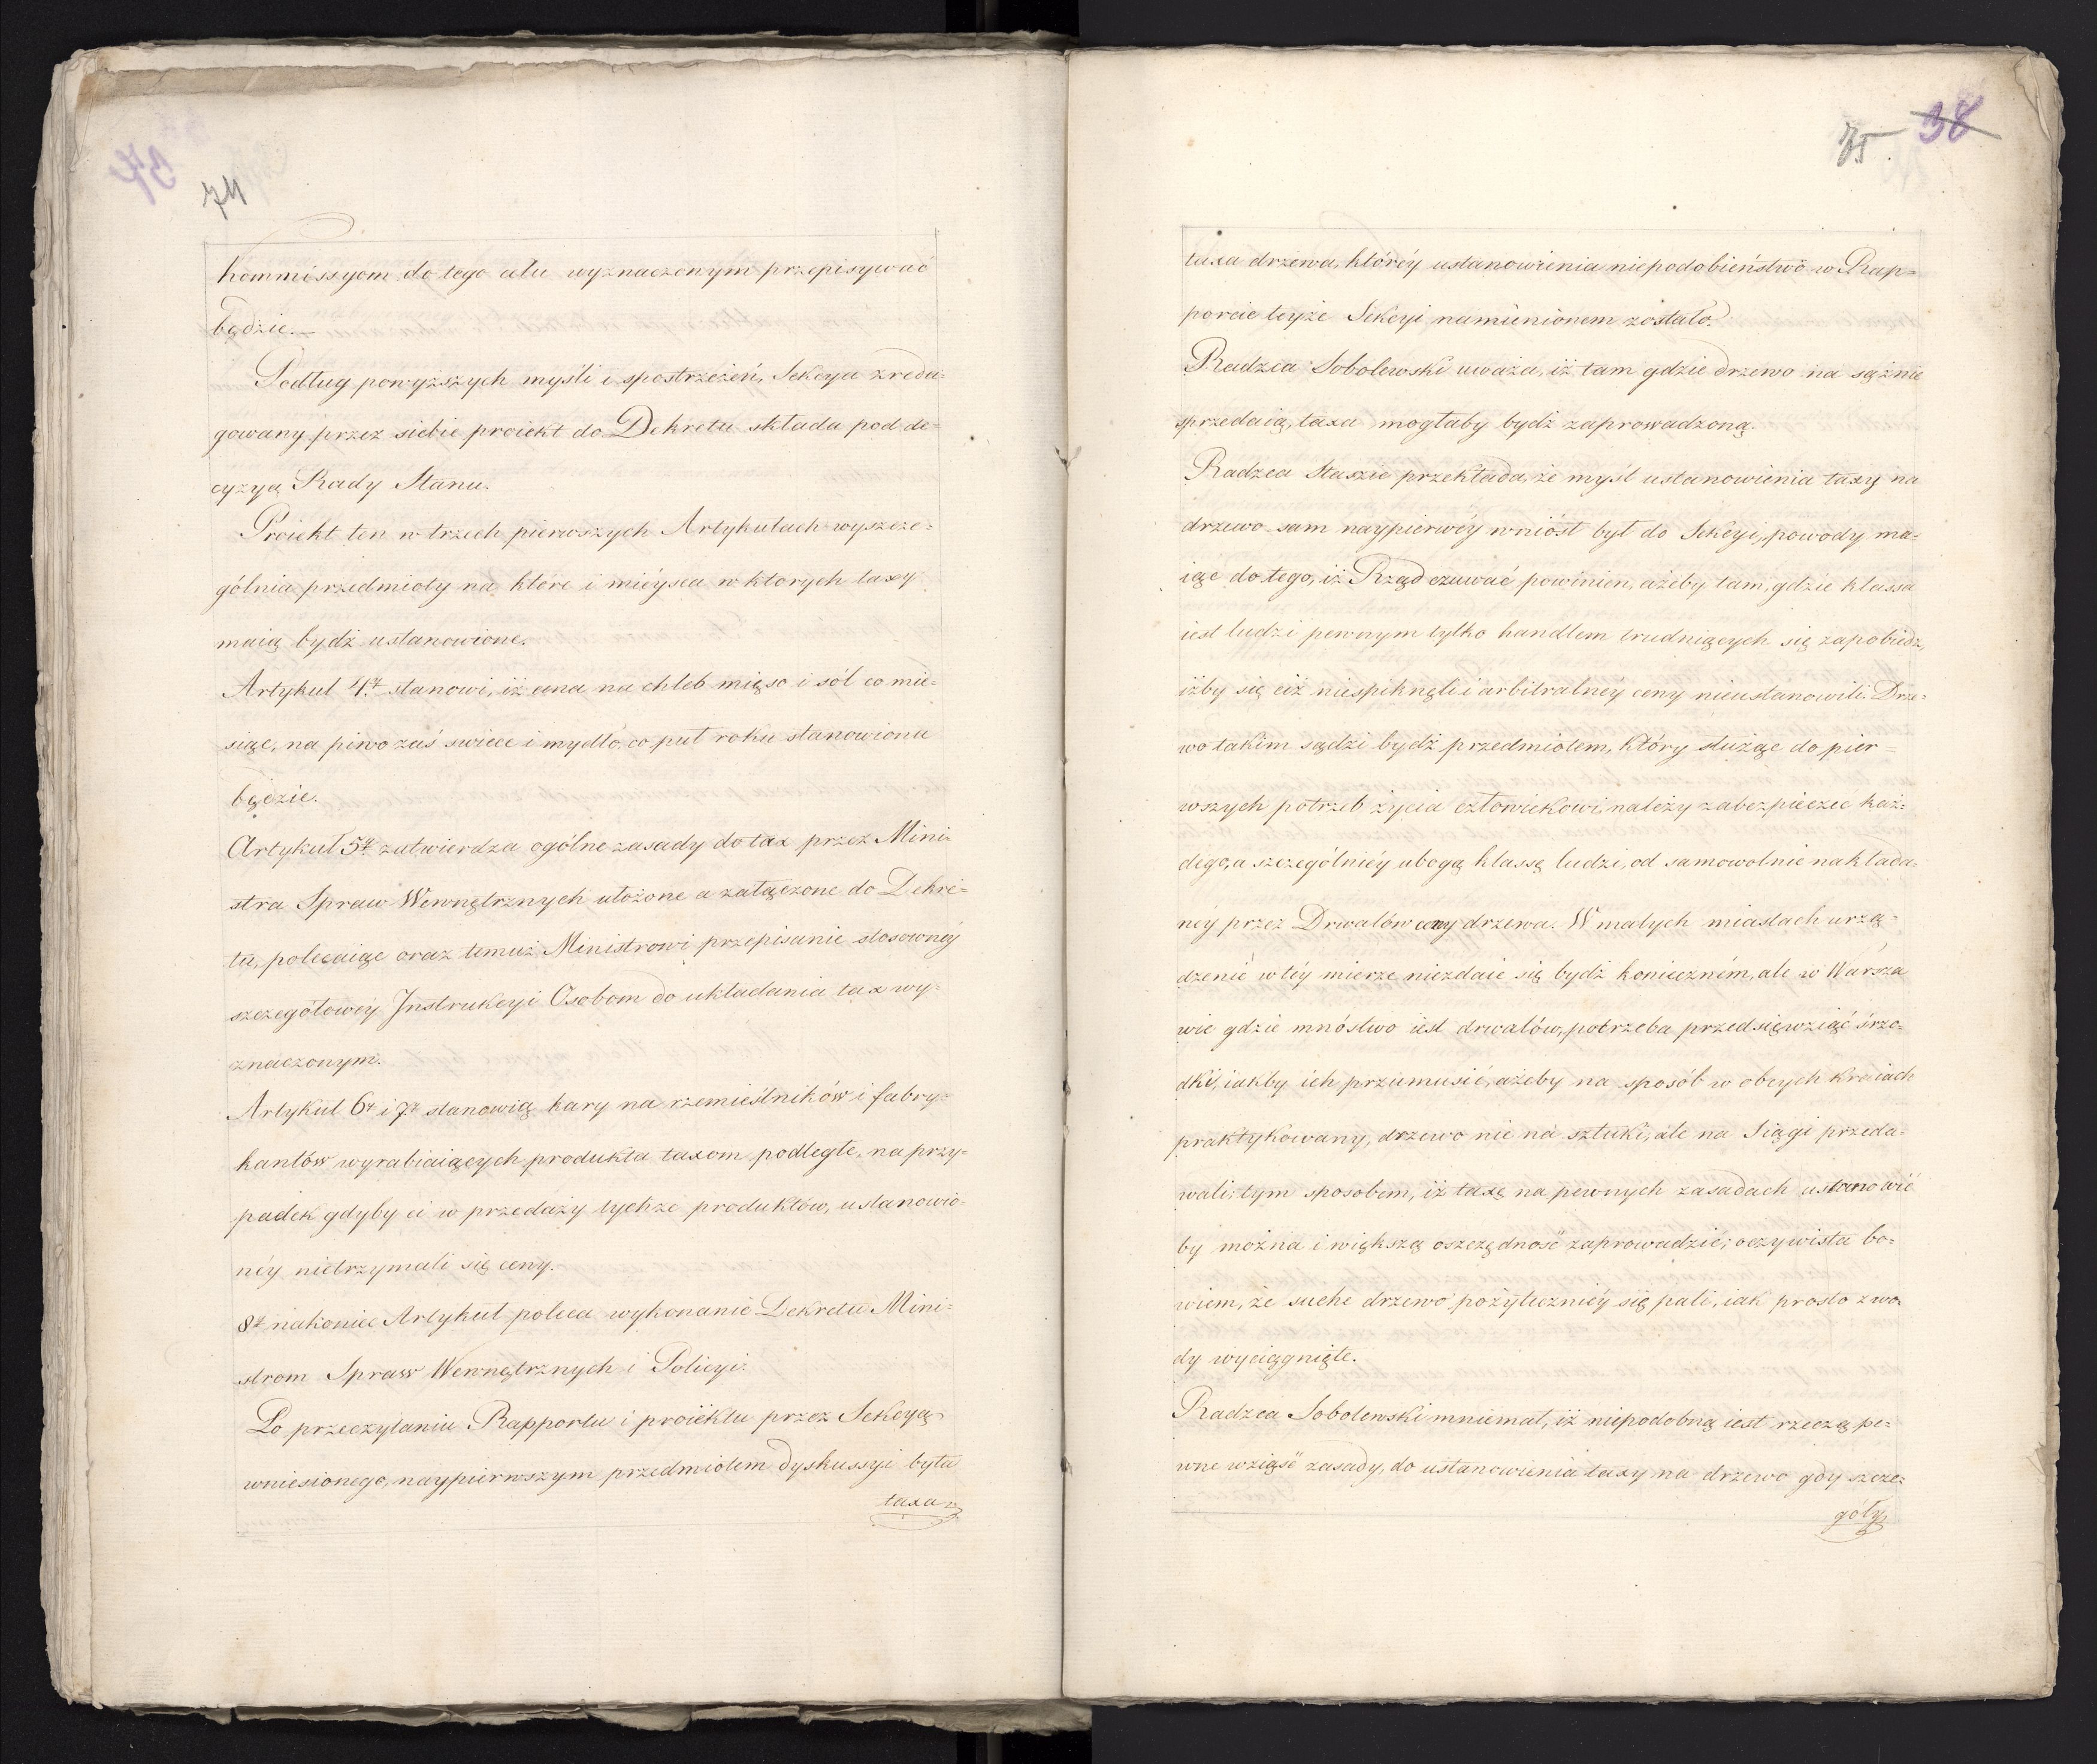 74
Kommissyom do tego celu wyznaczonym przepisywać
będzie.—
Podług powyższych myśli i spostrzeżeń, Sekcya zreda=
gowany przez siebie proiekt do Dekretu składa pod de=
cyzyą Rady Stanu.
Proiekt ten w trzech pierwszych Artykułach wyszcze=
gólnia przedmioty na które i mieysca w ktorych taxy
maią bydź ustanowione.
Artykuł 4ty stanowi, iż cena na chleb mięso i sól co mie=
siąc, na piwo zaś swiece i mydło, co puł roku stanowiona
będzie.
Artykuł 5ty zatwierdza ogólne zasady do tax przez Mini=
stra Spraw Wewnętrznych ułożone a załączone do Dekre=
tu, polecaiąc oraz temuż Ministrowi przepisanie stosowney
szczegółowey Jnstrukcyi Osobom do układania tax wy=
znaczonym.
Artykuł 6ty i 7y stanowią kary na rzemieślników i fabry=
kantów wyrabiaiących produkta taxom podległe, na przy=
padek gdyby ci w przedaży tychże produktów, ustanowio=
néy nietrzymali się ceny.
8y nakoniec Artykuł poleca wykonanie Dekretu Mini=
strom Spraw Wewnętrznych i Policyi.
Po przeczytaniu Rapportu i proiektu przez Sekcyą
wniesionego, naypierwszym przedmiotem dyskussyi była
taxa
75 38
taxa drzewa, któréy ustanowienia niepodobieństwo w Rap=
porcie teyże Sekcyi namienionem zostało.
Radzca Sobolewski uważa, iż tam gdzie drzewo na sążnie
sprzedaią, taxa mogłaby bydź zaprowadzoną.
Radzca Staszic przekłada, że myśl ustanowienia taxy na
drzewo sam naypierwéy wniósł był do Sekcyi, powody ma=
iąc do tego, iż Rząd czuwać powinien, ażeby tam, gdzie klassa
iest ludzi pewnym tylko handlem trudniących się zapobiedz,
iżby się ciż niespiknęli i arbitralnéy ceny nieustanowili. Drze=
wo takim sądzi bydź przedmiotem, który służąc do pier=
wszych potrzeb życia człowiekowi należy zabezpieczec każ=
dego, a szczególniéy ubogą klassę ludzi, od samowolnie nakłada=
néy przez Drwalów ceny drzewa. W małych miastach urzą=
dzenie w téy mierze niezdaie się bydź konieczném, ale w Warsza
wie gdzie mnóstwo iest drwalów, potrzeba przedsięwziąć śrzo=
dki, iakby ich przumusić, ażeby na sposób w obcych kraiach
praktykowany, drzewo nie na sztuki, ale na Siągi przeda=
wali; tym sposobem, iż taxę na pewnych zasadach ustanowić
by można i większą oszczędność zaprowadzić; oczywista bo=
wiem, że suche drzewo pożyteczniéy się pali, iak prosto z wo
dy wyciągnięte.
Radzca Sobolewski mniemał, iż niepodobną iest rzeczą pe=
wne wziąść zasady, do ustanowienia taxy na drzewo gdy szcze=
goły